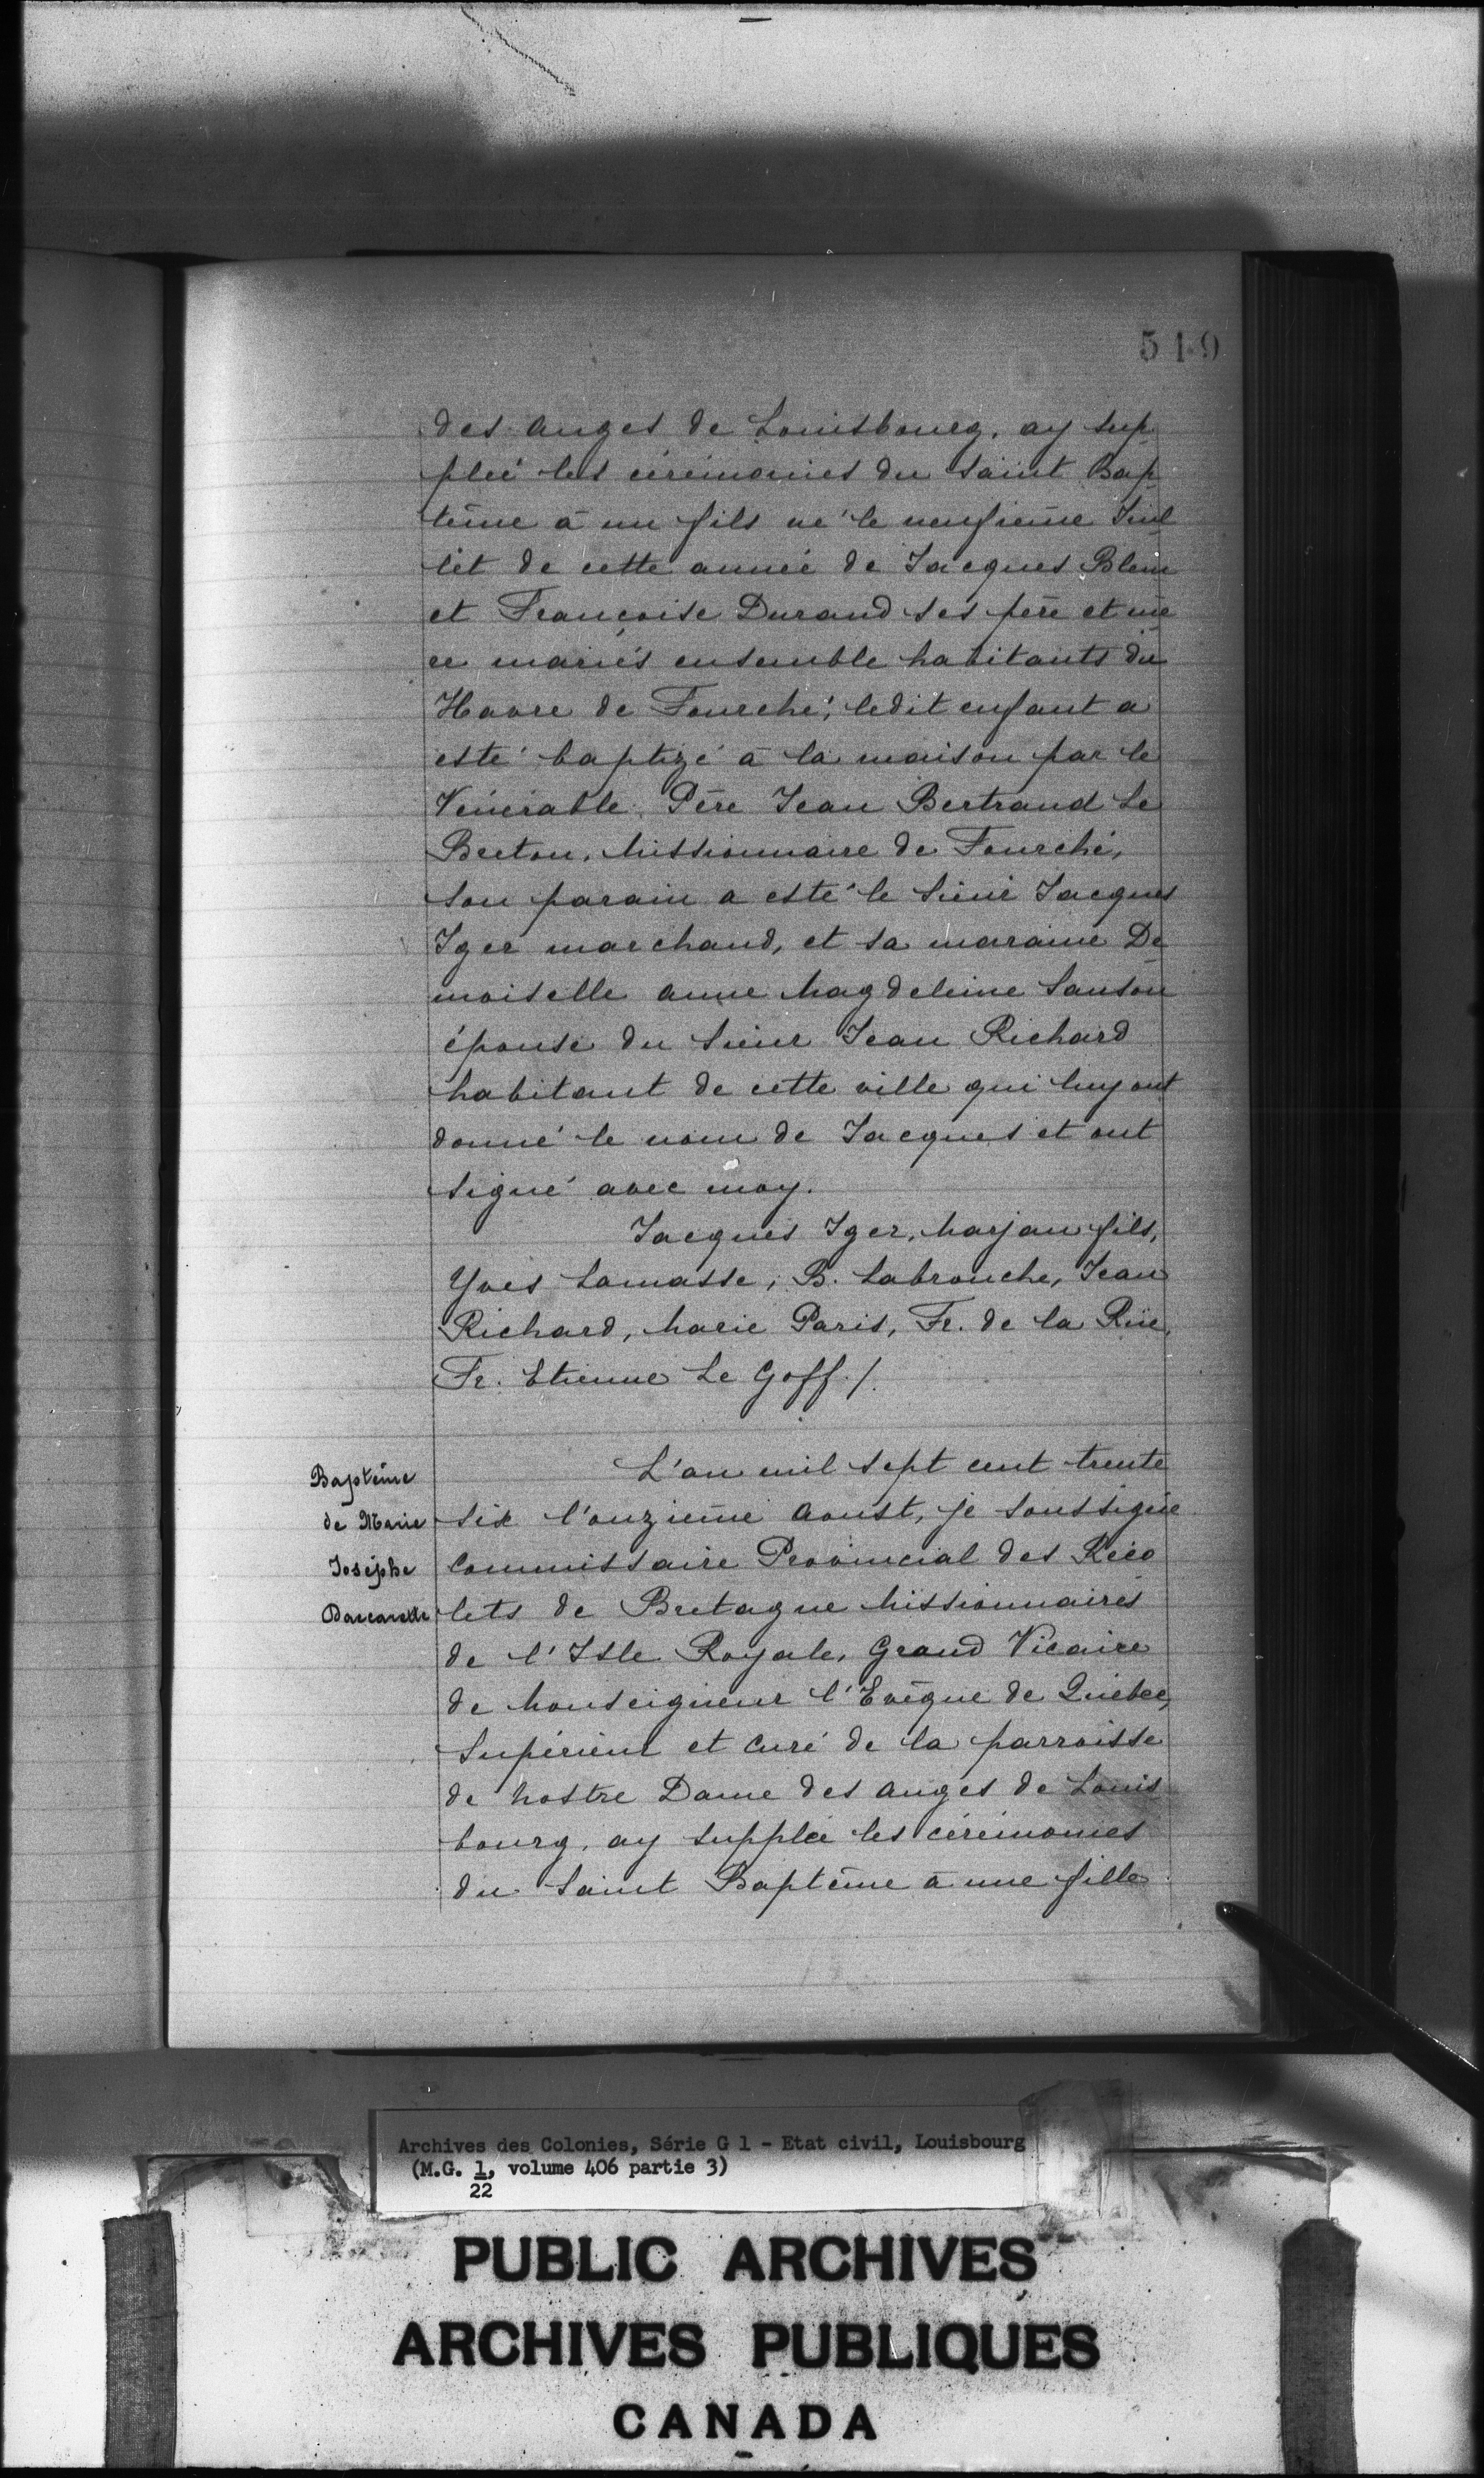 519
des anges de Louisbourg, ay sup
pleé les cérémonies du Saint Bap
tême à un fils né le neufième Juil
let de cette année de Jacques Blem
et Françoise Durand ses père et mè
re mariés ensemble habitants du
Havre de Fourché, ledit enfant a
esté baptizé à la maison par le
Vénérable Père Jean Bertrand Le
Breton, Missionnaire de Fourché,
son parain a esté le Sieur Jacques
Iger marchand, et sa maraine De
moiselle anne Magdeleine Sanson
épouse du Sieur Jean Richard
habitant de cette ville qui luy ont
donné le nom de Jacques et ont
signé avec moy.
Jacques Iger, Marjan fils,
Yves Lamasse, B. Labrouche, Jean
Richard, Marie Paris, Fr. de la Rüe,
Fr. Etienne Le Goff./.
Baptême
de Marie
Josèphe
L'an mil sept cent trente
six l'onzième Aoust, je soussigné
Commissaire Provincial des Réco
lets de Bretagne Missionnaires
de l'Isle Royale, Grand Vicaire
de Monseigneur l'Evêque de Québec,
Supérieur et Curé de la parroisse
de Nostre Dame des anges de Louis
bourg, ay suppleé les cérémonies
du Saint Baptême à une fille
Archives des Colonies, Série G 1 - Etat civil, Louisbourg
(M.G. 1, volume 406 partie 3)
22
PUBLIC ARCHIVES
ARCHIVES PUBLIQUES
CANADA